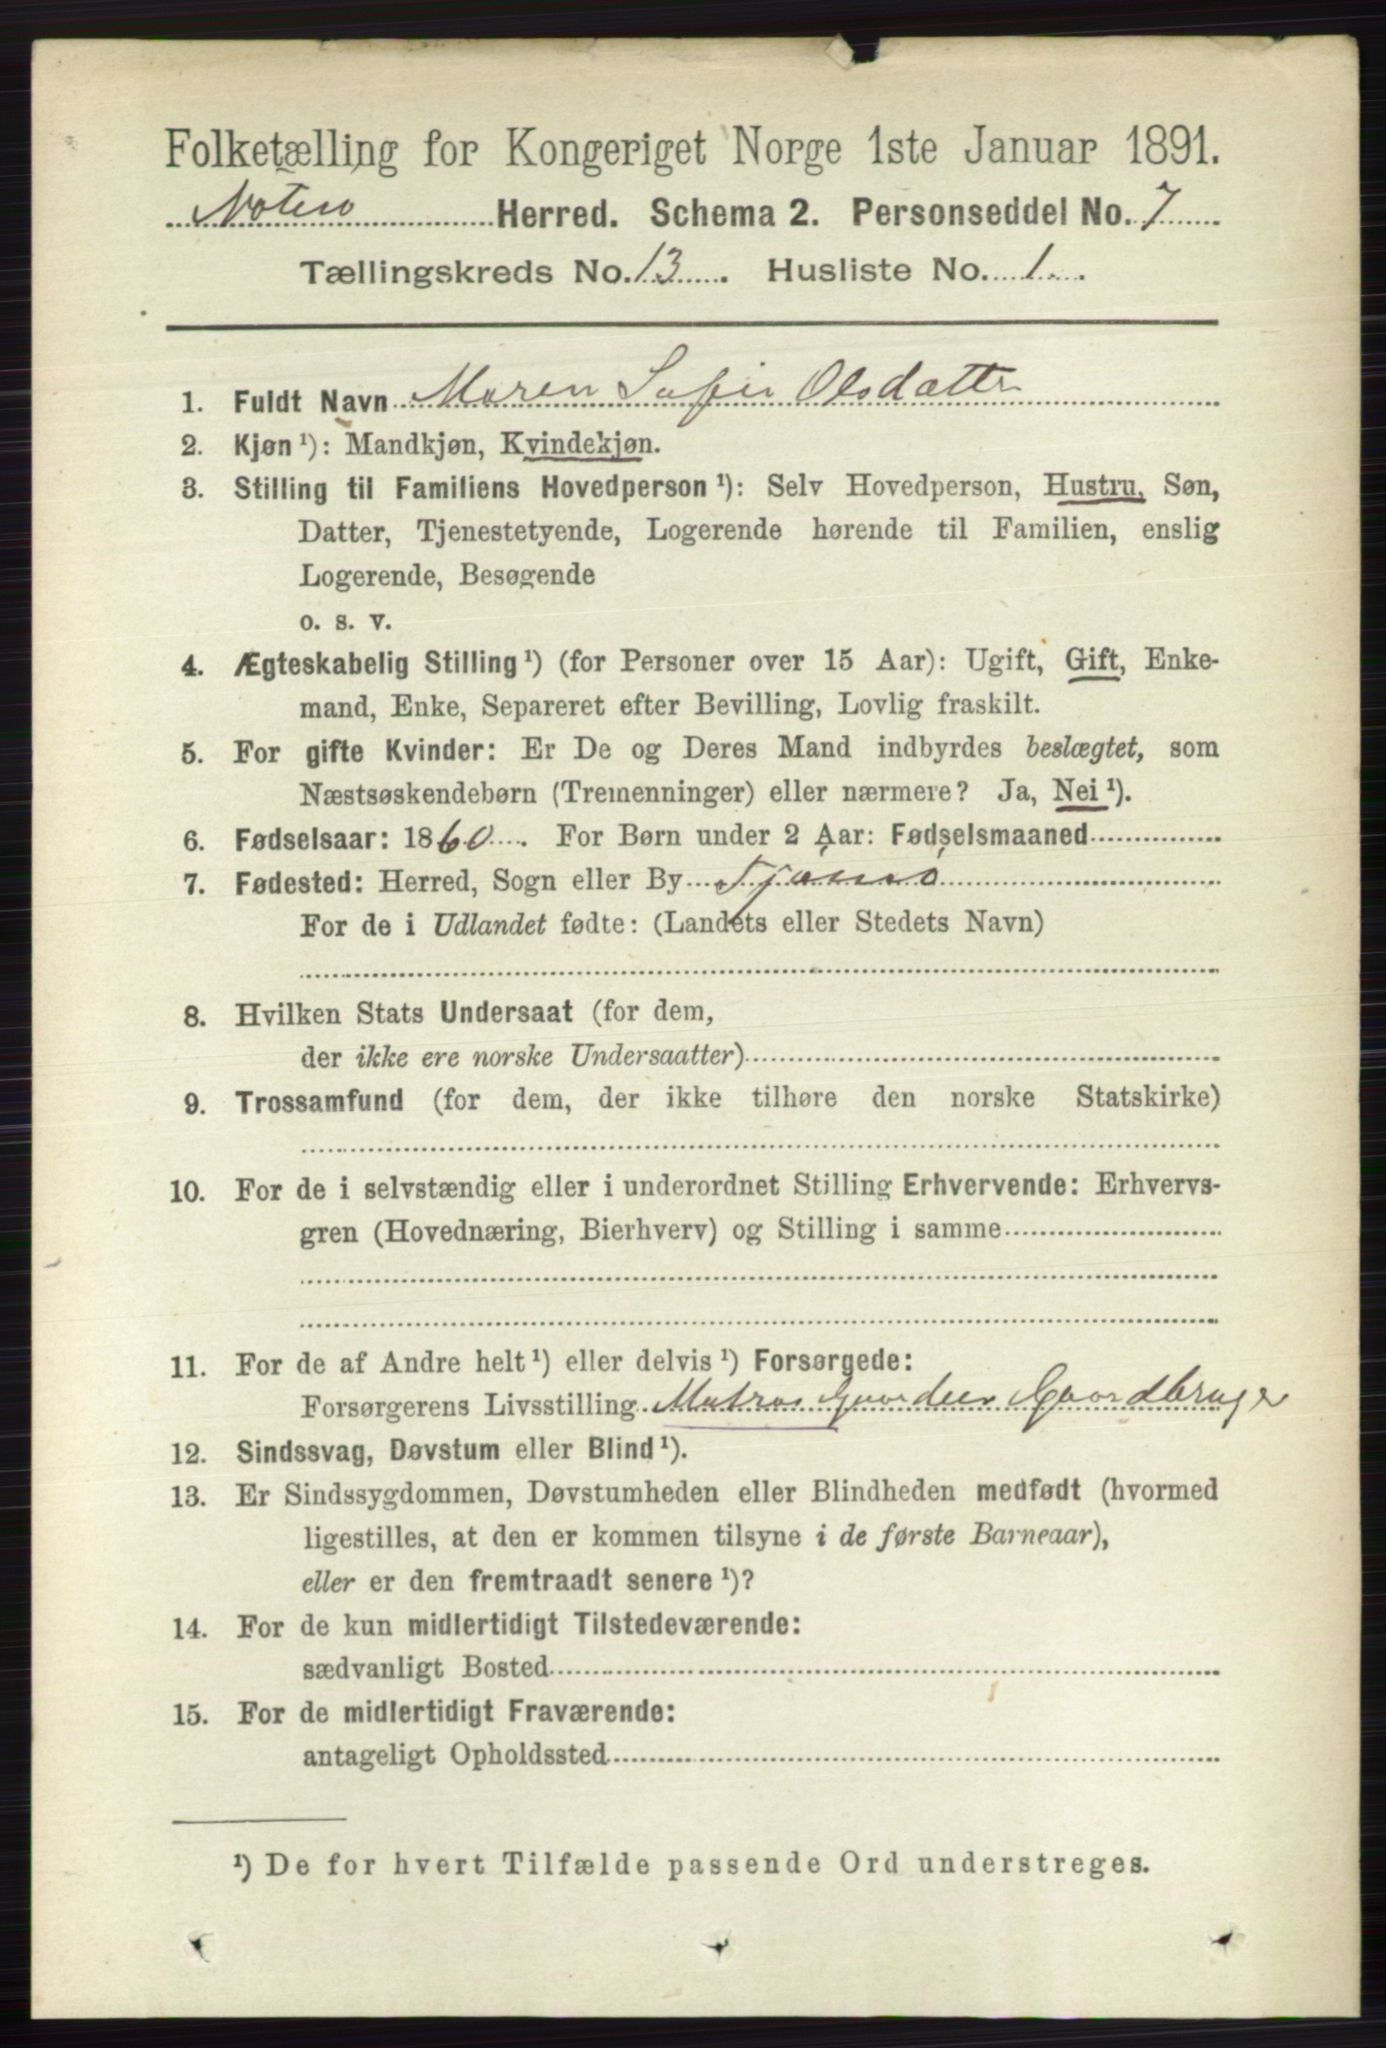 Folketælling for Kongeriget Norge 1ste Januar 1891.
Nøterø Herred. Schema 2. Personseddel No. 7
Tællingskreds No. 13. Husliste No. 1.
1. Fuldt Navn Maren Sofie Olsdatter
2. Kjøn ¹): Mandkjøn, Kvindekjøn.
3. Stilling til Familiens Hovedperson ¹): Selv Hovedperson, Hustru, Søn,
Datter, Tjenestetyende, Logerende hørende til Familien, enslig
Logerende, Besøgende
o. s. v.
4. Ægteskabelig Stilling ¹) (for Personer over 15 Aar): Ugift, Gift, Enke-
mand, Enke, Separeret efter Bevilling, Lovlig fraskilt.
5. For gifte Kvinder: Er De og Deres Mand indbyrdes beslægtet, som
Næstsøskendebørn (Tremenninger) eller nærmere? Ja, Nei ¹).
6. Fødselsaar: 1860. For Børn under 2 Aar: Fødselsmaaned
7. Fødested: Herred, Sogn eller By Tjømø
For de i Udlandet fødte: (Landets eller Stedets Navn)
8. Hvilken Stats Undersaat (for dem,
der ikke ere norske Undersaatter)
9. Trossamfund (for dem, der ikke tilhøre den norske Statskirke)
10. For de i selvstændig eller i underordnet Stilling Erhvervende: Erhvervs-
gren (Hovednæring, Bierhverv) og Stilling i samme
11. For de af Andre helt ¹) eller delvis ¹) Forsørgede:
Forsørgerens Livsstilling Matros Gaardeier Gaardbruger
12. Sindssvag, Døvstum eller Blind ¹).
13. Er Sindssygdommen, Døvstumheden eller Blindheden medfødt (hvormed
ligestilles, at den er kommen tilsyne i de første Barneaar),
eller er den fremtraadt senere ¹)?
14. For de kun midlertidigt Tilstedeværende:
sædvanligt Bosted
15. For de midlertidigt Fraværende:
antageligt Opholdssted
¹) De for hvert Tilfælde passende Ord understreges.